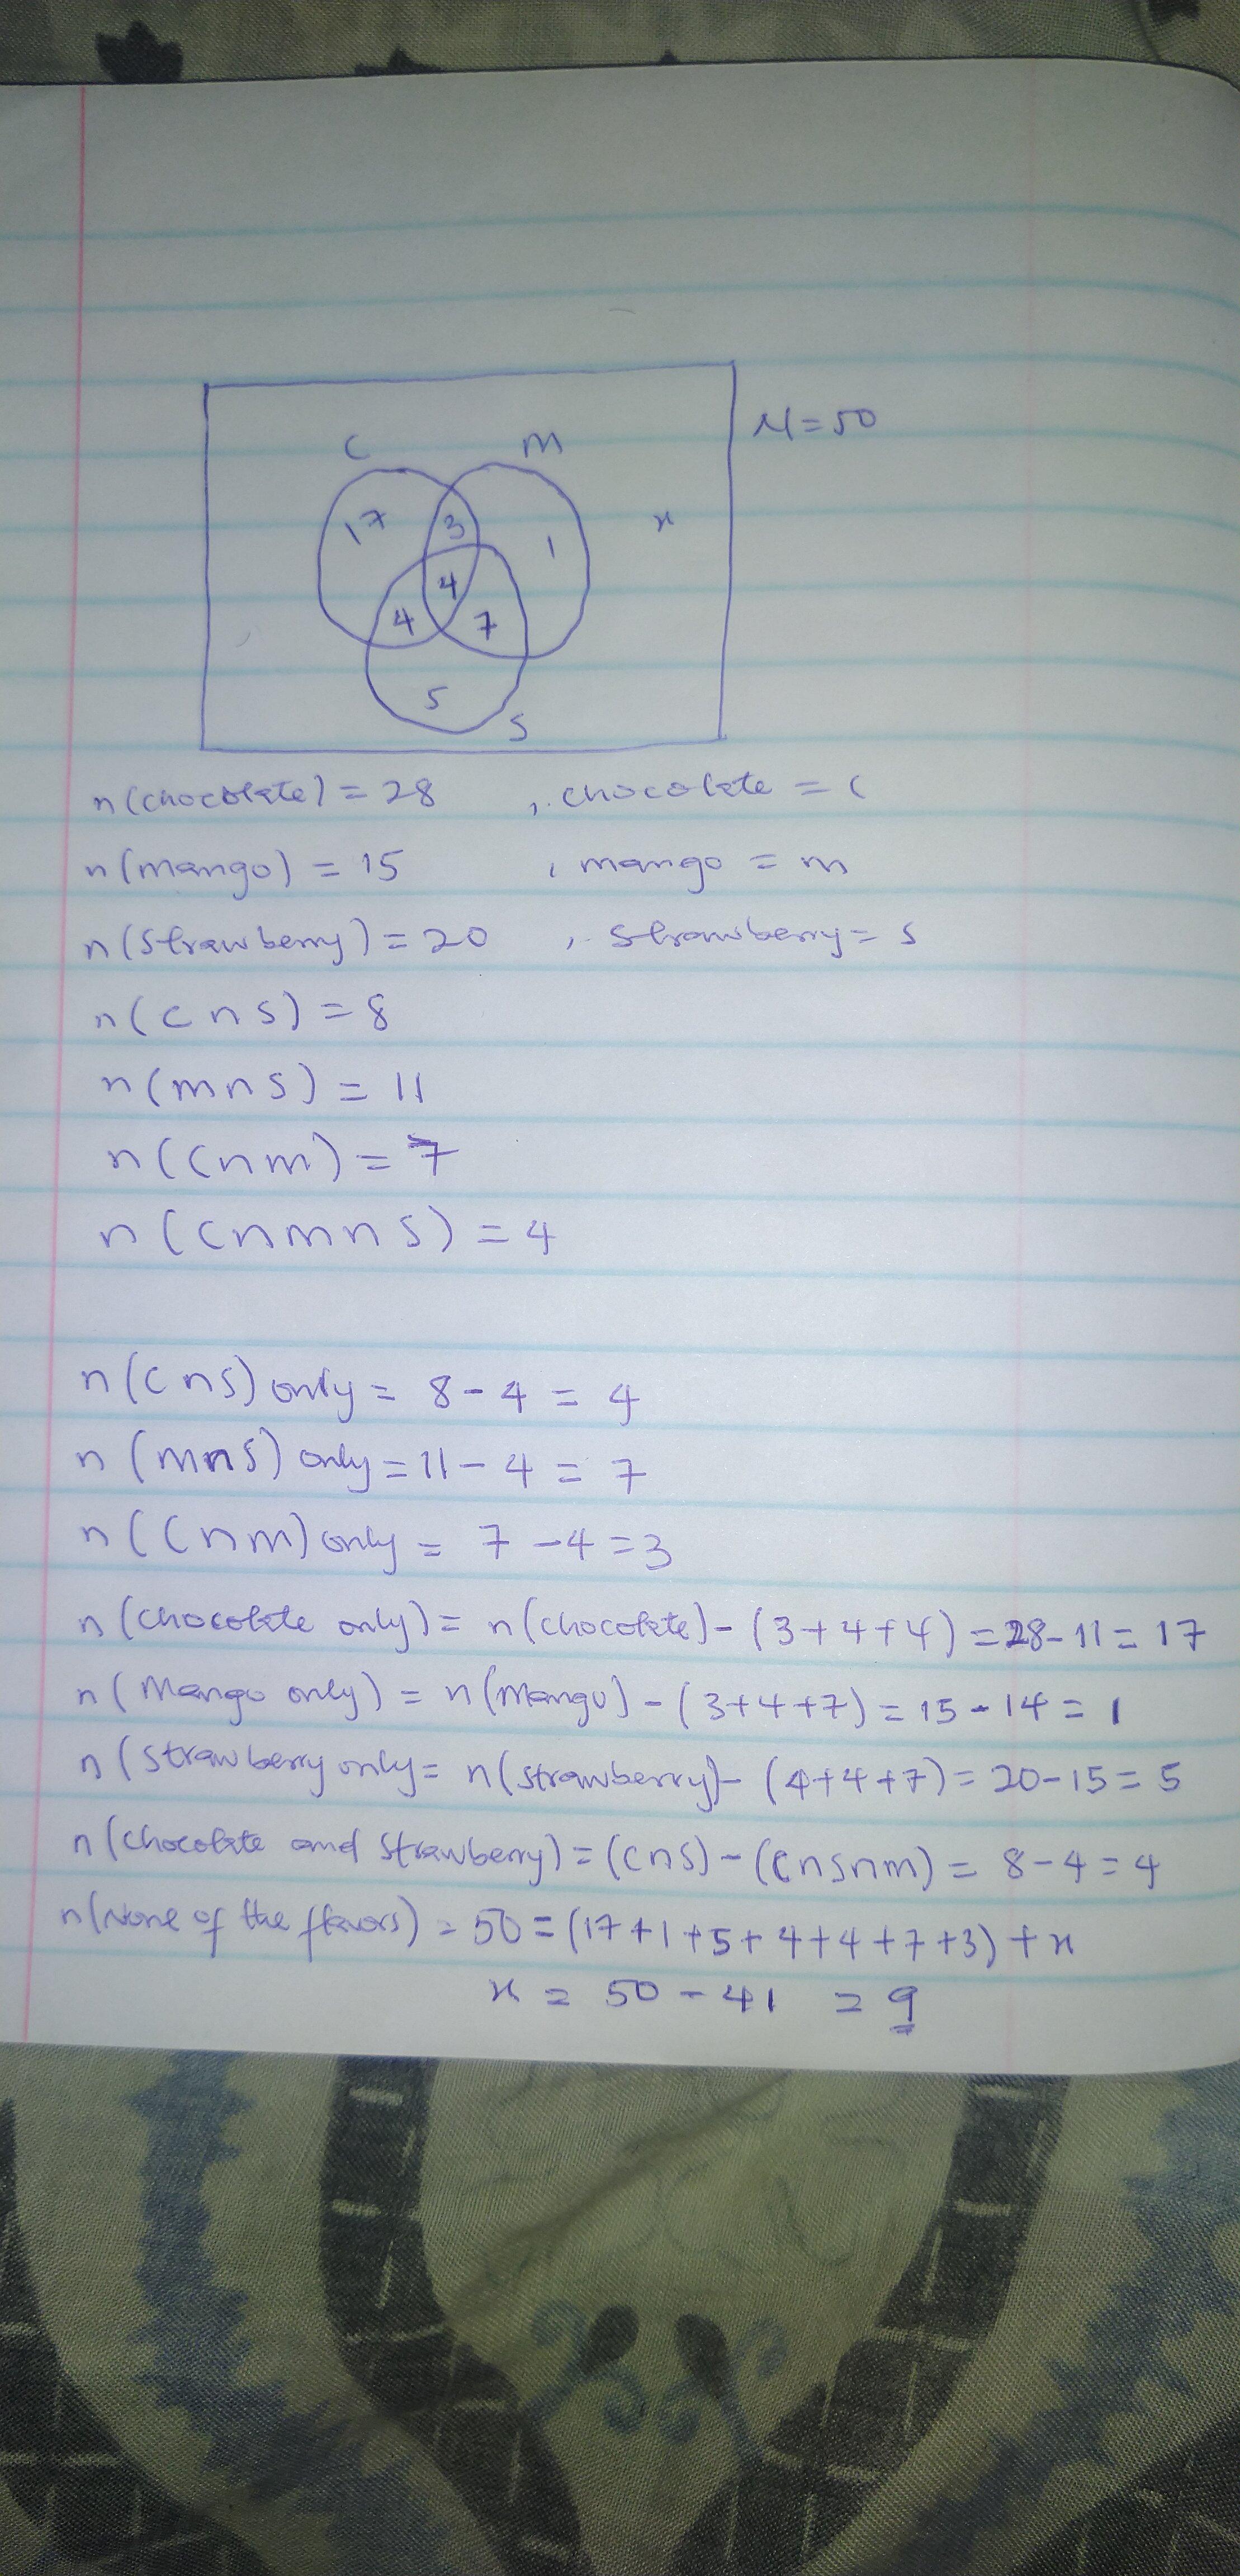 C m μ=50
17 3 1 x
4
4 7
5
S
n(chocolate)=28 , chocolate = C
n(mango) = 15 , mango = m
n(strawberry)=20 , strawberry= s
n(c n s) = 8
n(m n s) = 11
n(C n m) = 7
n(C n m n s) = 4
n(c n s) only = 8 - 4 = 4
n (m n s) only = 11 - 4 = 7
n(C n m) only = 7 - 4 = 3
n(chocolate only) = n(chocolate) - (3+4+4) = 28-11 = 17
n(Mango only) = n(mango) - (3+4+7) = 15 - 14 = 1
n(strawberry only = n(strawberry) - (4+4+7) = 20-15 = 5
n(chocolate and strawberry) = (C n s) - (C n s n m) = 8-4 = 4
n(None of the flavors) = 50 = (17+1+5+4+4+7+3) + x
x = 50 - 41 = 9